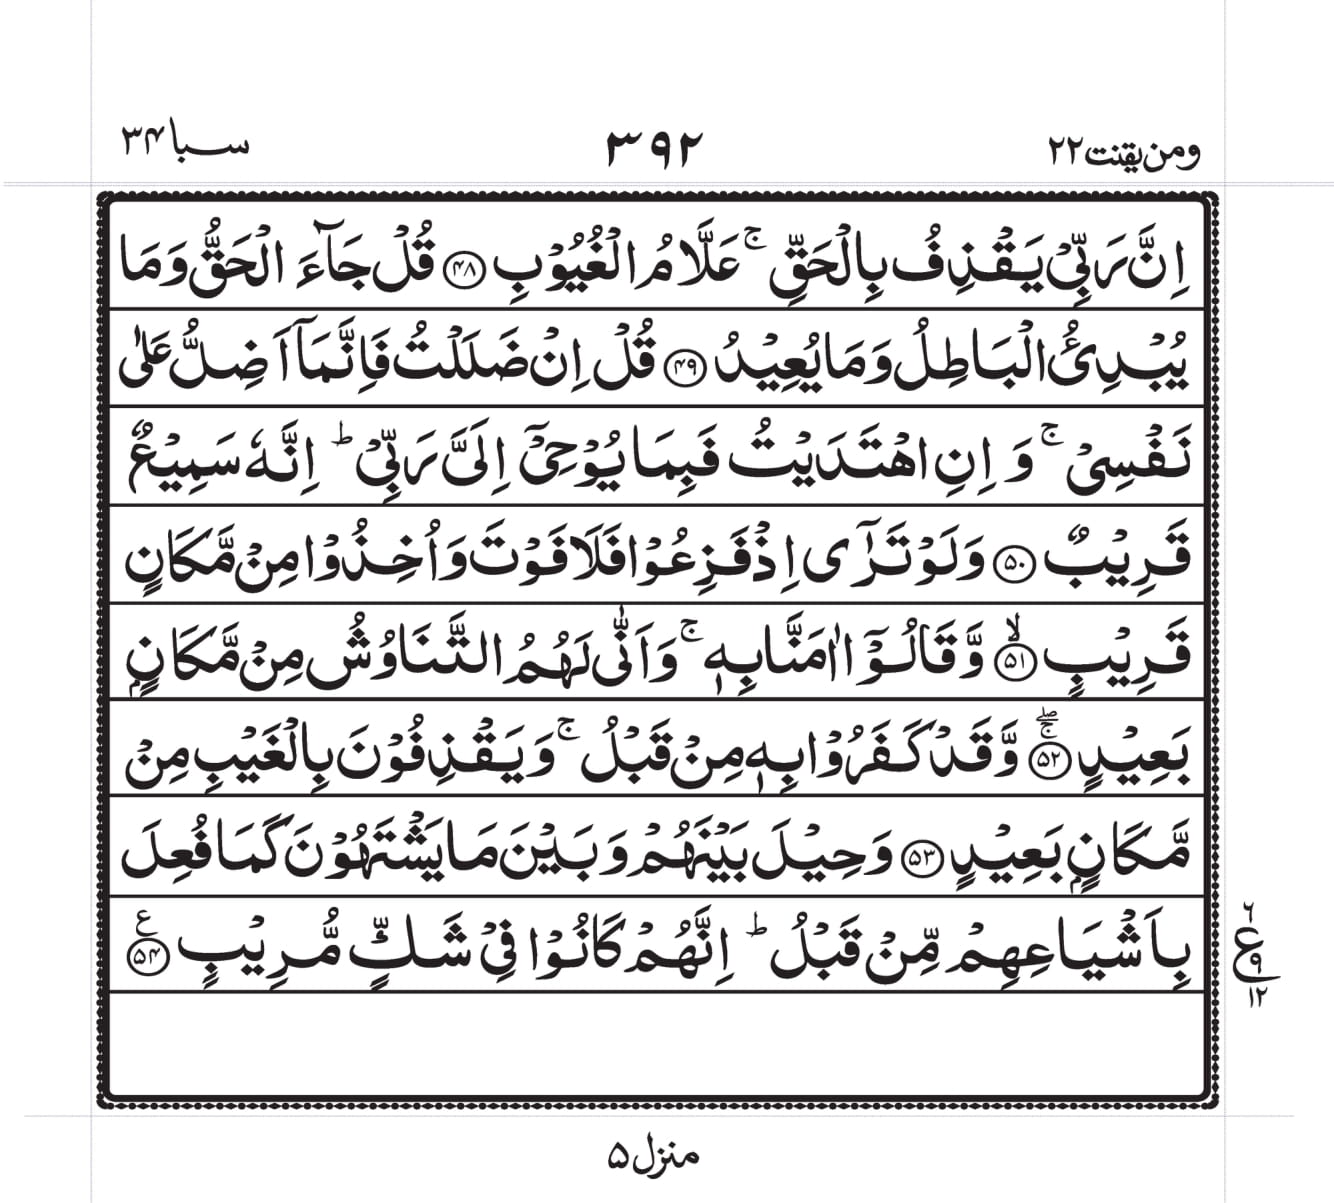 ومن یقنت ۲۲
۳۹۲
سبا ۳۴
اِنَّ رَبِّیۡ یَقۡذِفُ بِالۡحَقِّ ۚ عَلَّامُ الۡغُیُوۡبِ ﴿۴۸﴾ قُلۡ جَآءَ الۡحَقُّ وَمَا
یُبۡدِئُ الۡبَاطِلُ وَمَا یُعِیۡدُ ﴿۴۹﴾ قُلۡ اِنۡ ضَلَلۡتُ فَاِنَّمَاۤ اَضِلُّ عَلٰی
نَفۡسِیۡ ۚ وَ اِنِ اهۡتَدَیۡتُ فَبِمَا یُوۡحِیۡۤ اِلَیَّ رَبِّیۡ ؕ اِنَّهٗ سَمِیۡعٌ
قَرِیۡبٌ ﴿۵۰﴾ وَلَوۡ تَرٰۤی اِذۡ فَزِعُوۡا فَلَا فَوۡتَ وَاُخِذُوۡا مِنۡ مَّکَانٍ
قَرِیۡبٍ ﴿ۙ۵۱﴾ وَّقَالُوۡۤا اٰمَنَّا بِهٖ ۚ وَاَنّٰی لَهُمُ التَّنَاوُشُ مِنۡ مَّکَانٍۭ
بَعِیۡدٍ ﴿ۚۖ۵۲﴾ وَّقَدۡ کَفَرُوۡا بِهٖ مِنۡ قَبۡلُ ۚ وَیَقۡذِفُوۡنَ بِالۡغَیۡبِ مِنۡ
مَّکَانٍۭ بَعِیۡدٍ ﴿۵۳﴾ وَحِیۡلَ بَیۡنَهُمۡ وَبَیۡنَ مَا یَشۡتَهُوۡنَ کَمَا فُعِلَ
بِاَشۡیَاعِهِمۡ مِّنۡ قَبۡلُ ؕ اِنَّهُمۡ کَانُوۡا فِیۡ شَکٍّ مُّرِیۡبٍ ﴿۵۴﴾ ع
۶
ع
۹
۱۲
منزل ۵